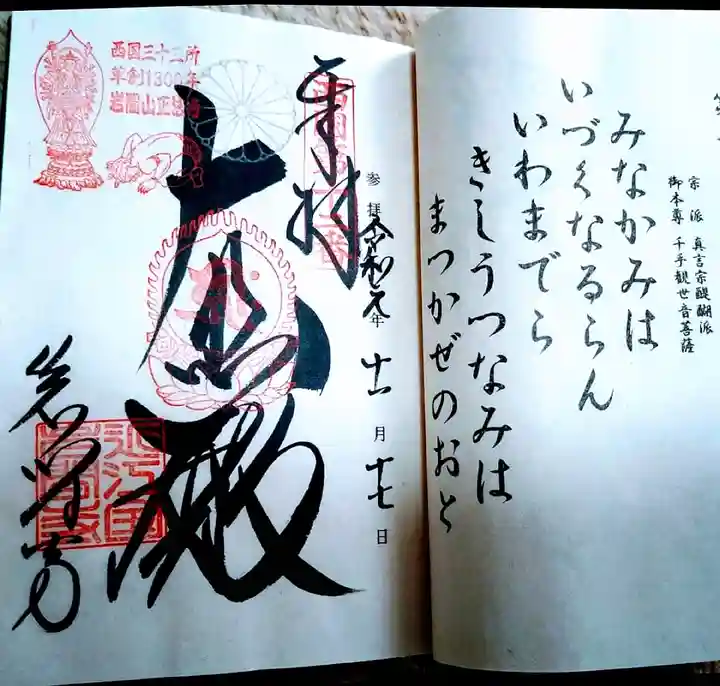 宗派 真言宗醍醐派
御本尊 千手観世音菩薩
みなかみは
いづくなるらん
いわまでら
きしうつなみは
まつかぜのおと
西国三十三所
草創1300年
岩間山正法寺
奉拝
西国第十二番
参拝令和元年十一月十七日
大悲殿
岩間寺